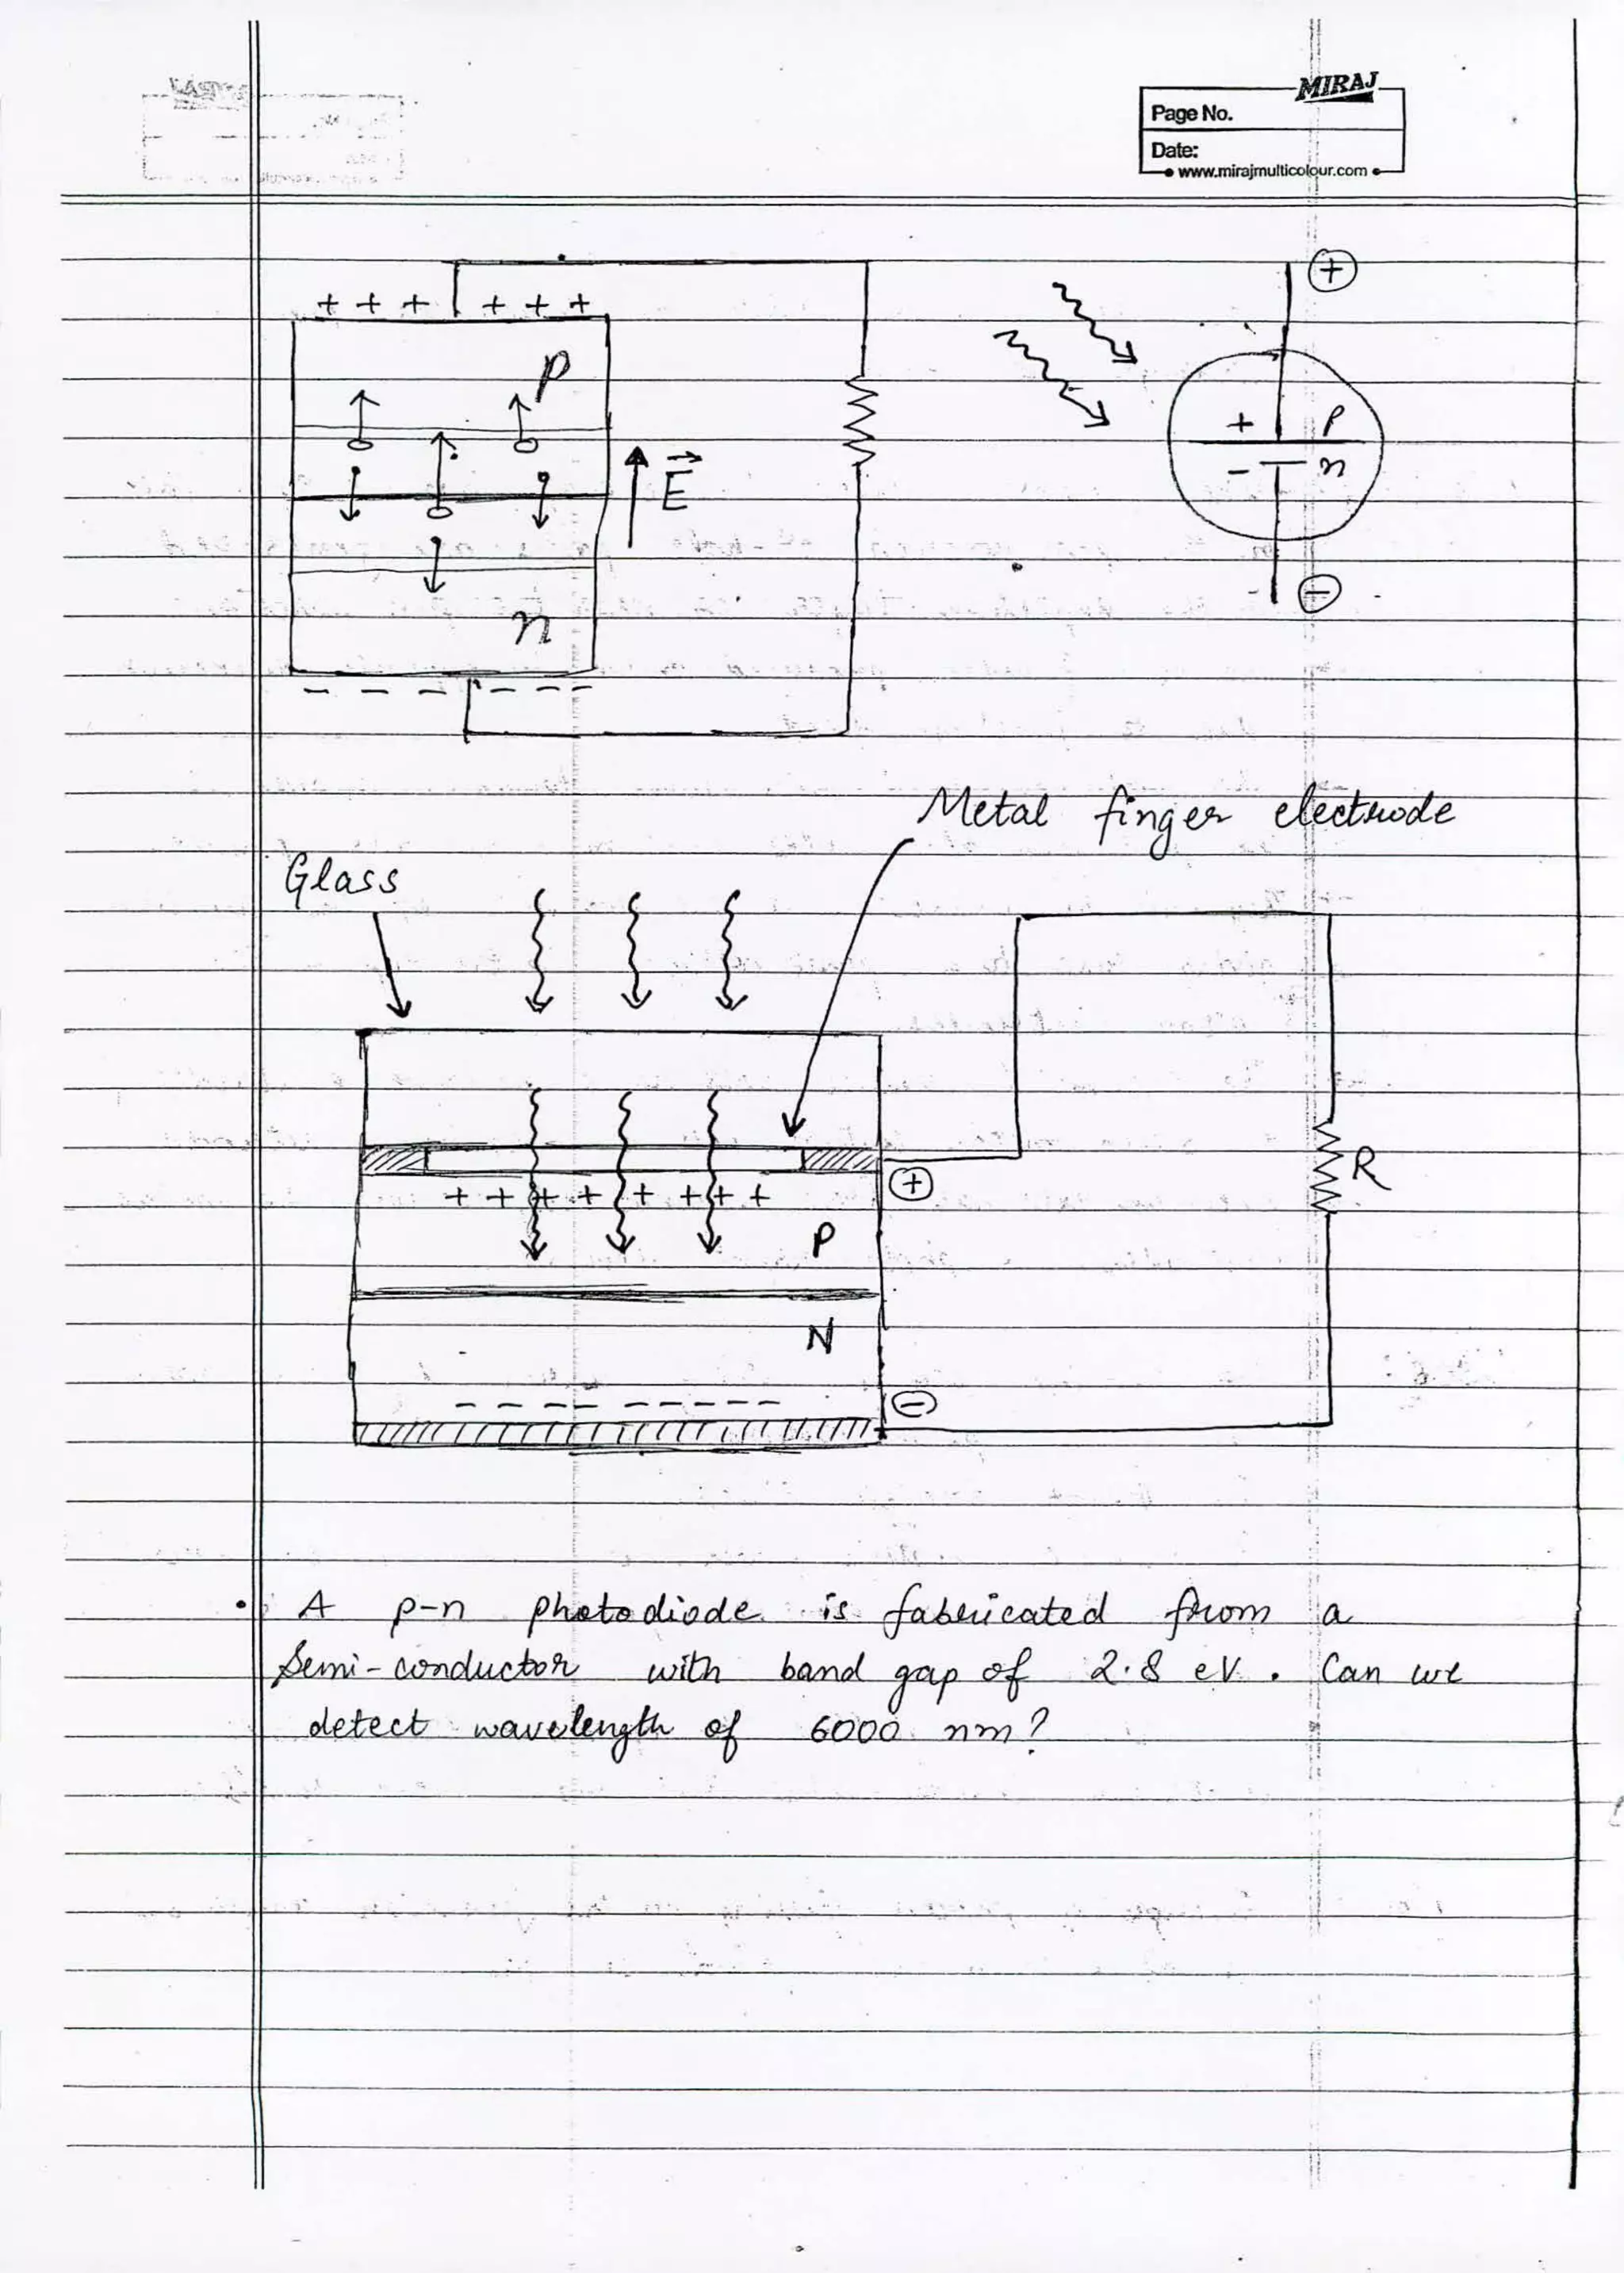 MIRAJ
Page No.
Date:
www.mirajmulticolour.com
+ + + + + +
p
E
n
- - - - - -
+
+ p
- n
-
Metal finger electrode
Glass
R
+ + + + + + + +
+
P
N
- - - - - - - - -
-
• A p-n photodiode is fabricated from a
Semi-conductor with band gap of 2.8 eV. Can we
detect wavelength of 6000 nm?